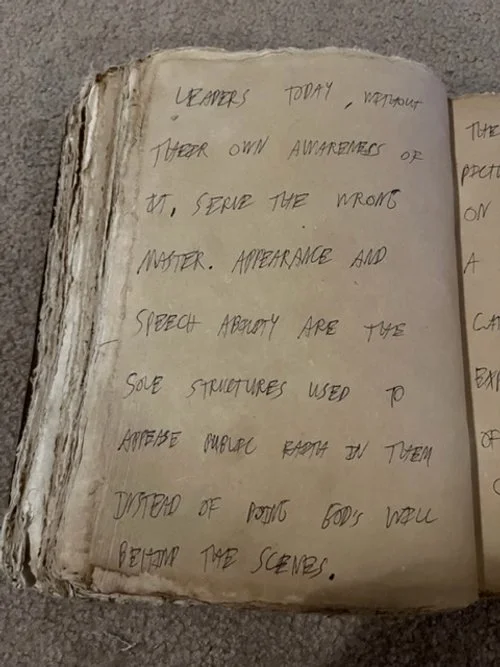 LEADERS TODAY, WITHOUT
THEIR OWN AWARENESS OF
IT, SERVE THE WRONG
MASTER. APPEARANCE AND
SPEECH ABILITY ARE THE
SOLE STRUCTURES USED TO
APPEASE PUBLIC FAITH IN THEM
INSTEAD OF DOING GOD'S WILL
BEHIND THE SCENES.
THE
ON
A
OF